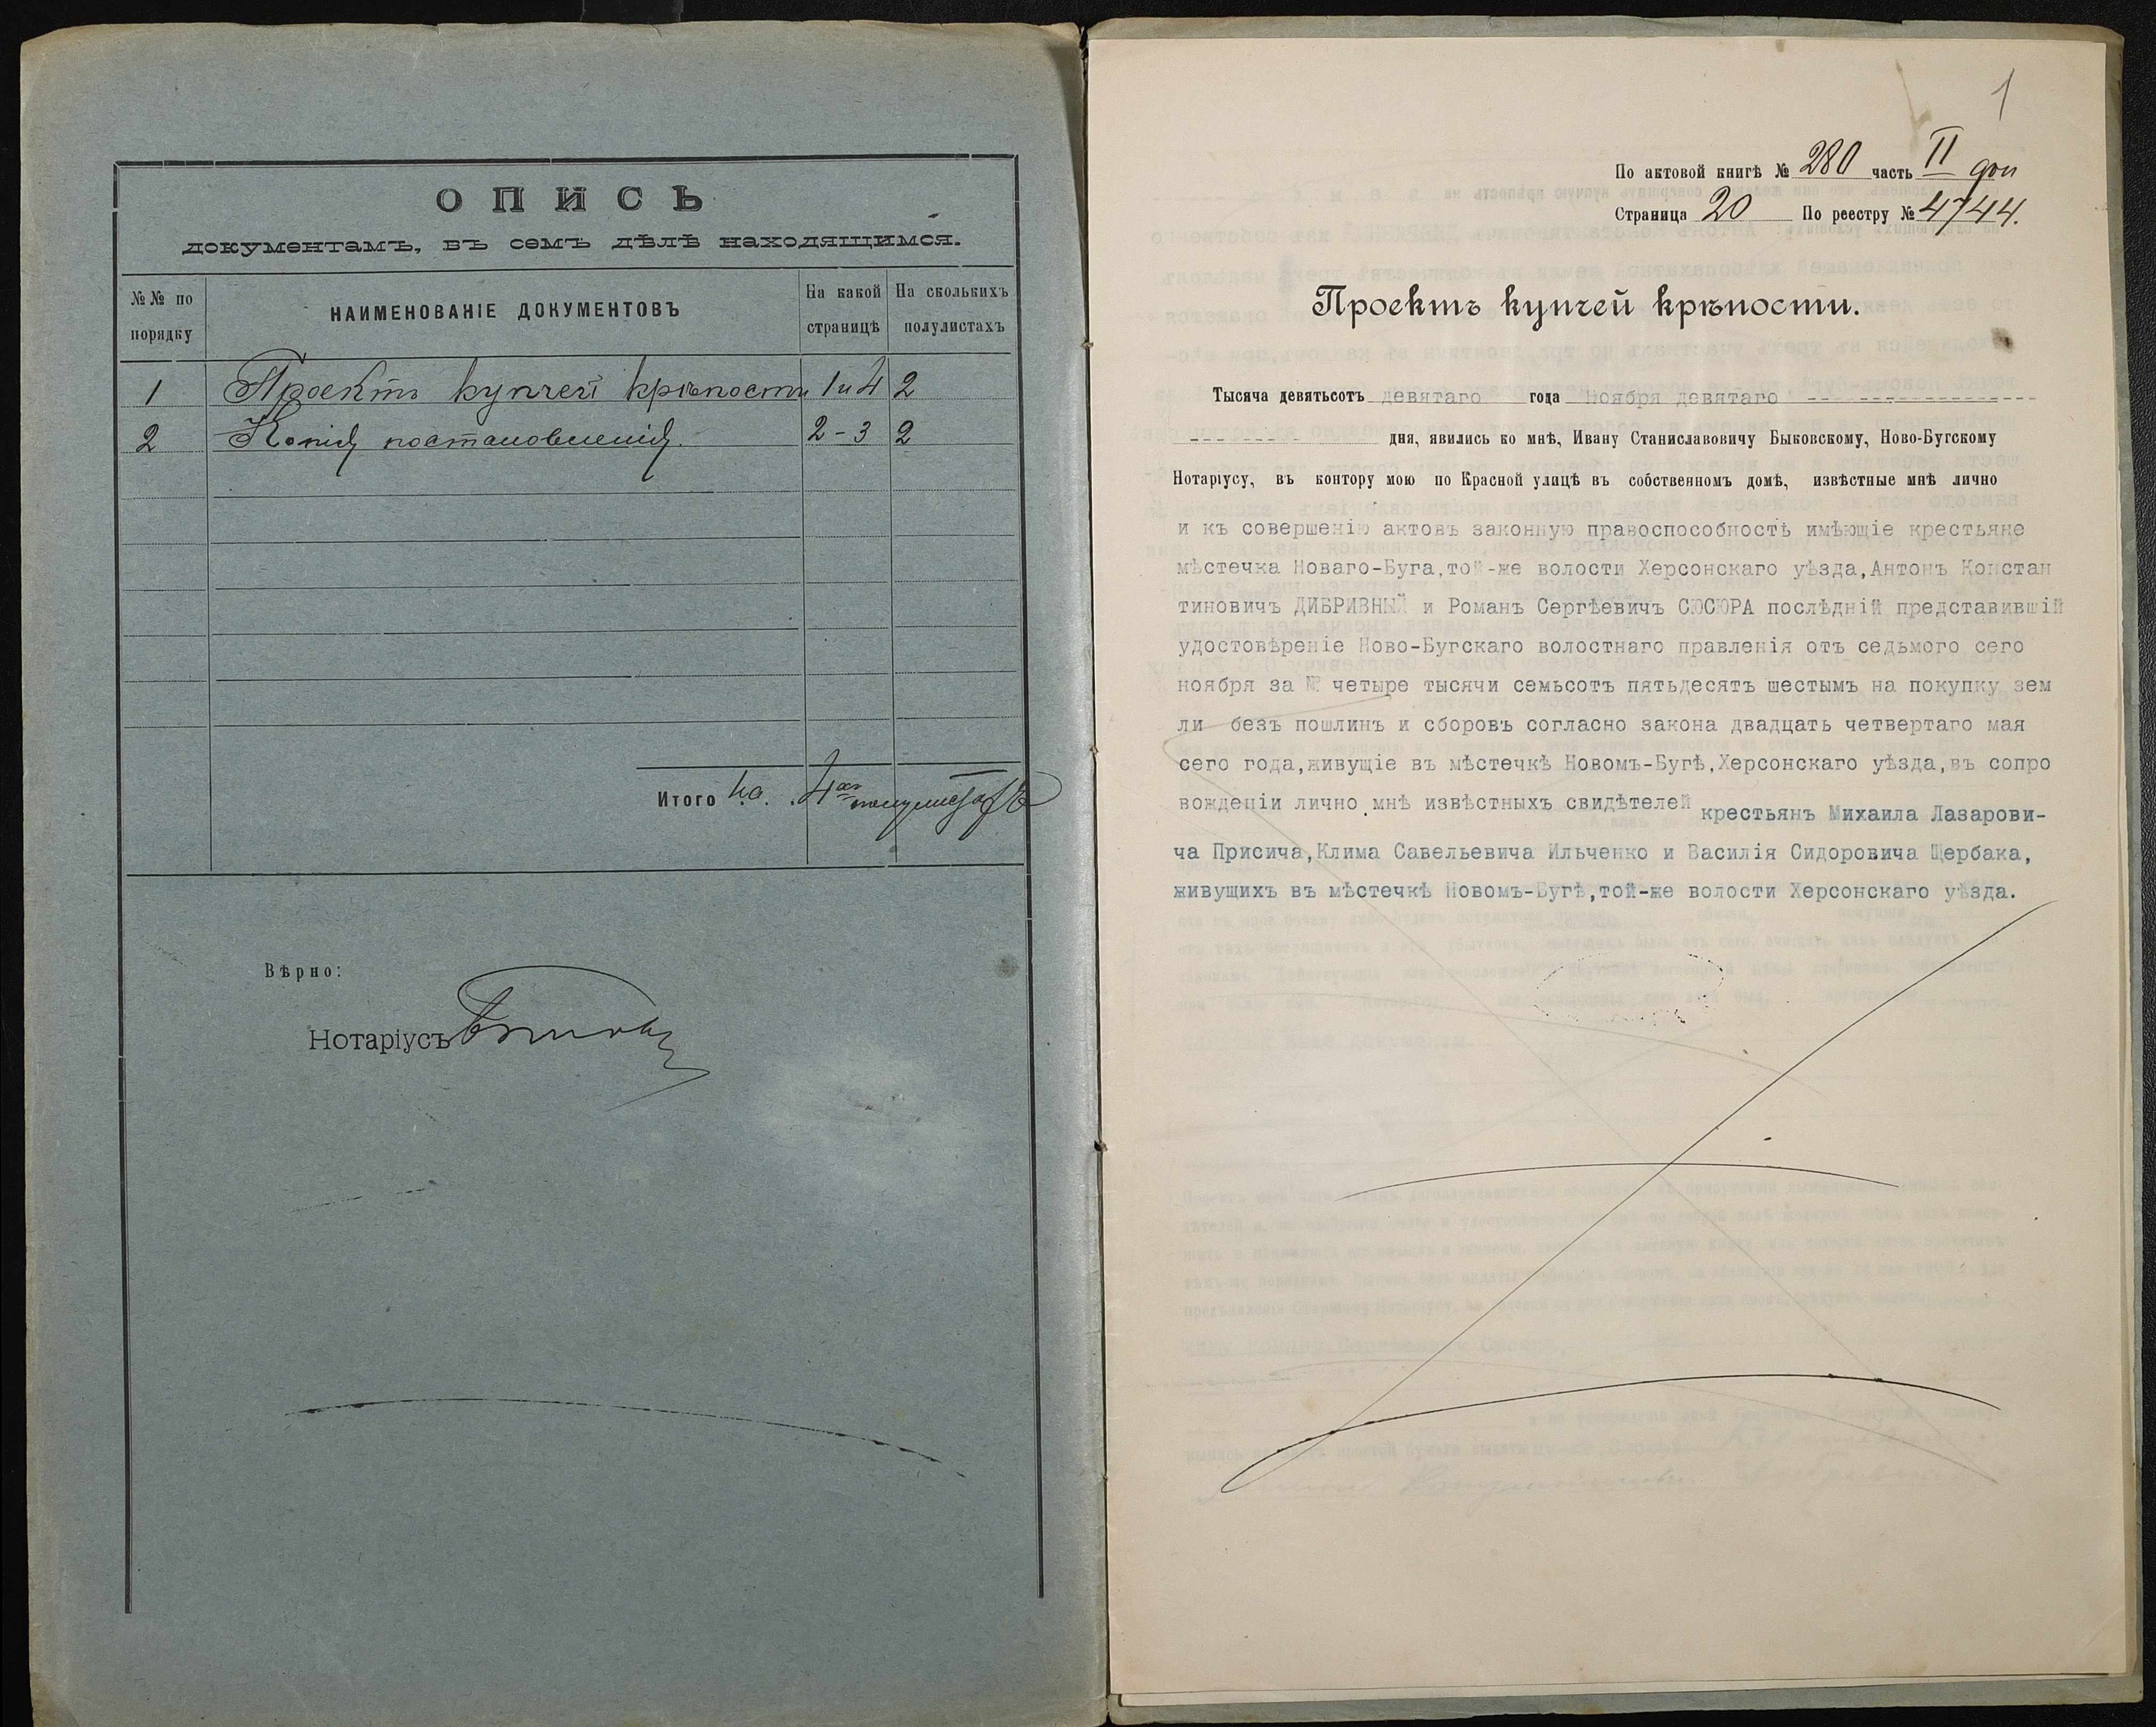 ОПИСЬ
документамъ, въ семъ дѣлѣ находящимся.
№№ по порядку
НАИМЕНОВАНІЕ ДОКУМЕНТОВЪ
На какой страницѣ
На сколькихъ полулистахъ
1 Проектъ купчей крѣпости 1 и 4 2
2 Копія постановленія. 2-3 2
Итого на 4хъ полулистахъ
Вѣрно:
Нотаріусъ
1
По актовой книгѣ № 280 часть II доп
Страница 20 По реестру № 4744.
Проектъ купчей крѣпости.
Тысяча девятьсотъ девятаго года Ноября девятаго
дня, явились ко мнѣ, Ивану Станиславовичу Быковскому, Ново-Бугскому
Нотаріусу, въ контору мою по Красной улицѣ въ собственномъ домѣ, извѣстные мнѣ лично
и къ совершенію актовъ законную правоспособность имѣющіе крестьяне
мѣстечка Новаго-Буга,той-же волости Херсонскаго уѣзда,Антонъ Констан
тиновичъ ДИБРИВНЫЙ и Романъ Сергѣевичъ СЮСЮРА послѣдній представившій
удостовѣреніе Ново-Бугскаго волостнаго правленія отъ седьмого сего
ноября за № четыре тысячи семьсотъ пятьдесятъ шестымъ на покупку зем
ли безъ пошлинъ и сборовъ согласно закона двадцать четвертаго мая
сего года,живущіе въ мѣстечкѣ Новомъ-Бугѣ,Херсонскаго уѣзда,въ сопро
вожденіи лично мнѣ извѣстныхъ свидѣтелей крестьянъ Михаила Лазарови-
ча Присича,Клима Савельевича Ильченко и Василія Сидоровича Щербака,
живущихъ въ мѣстечкѣ Новомъ-Бугѣ,той-же волости Херсонскаго уѣзда.